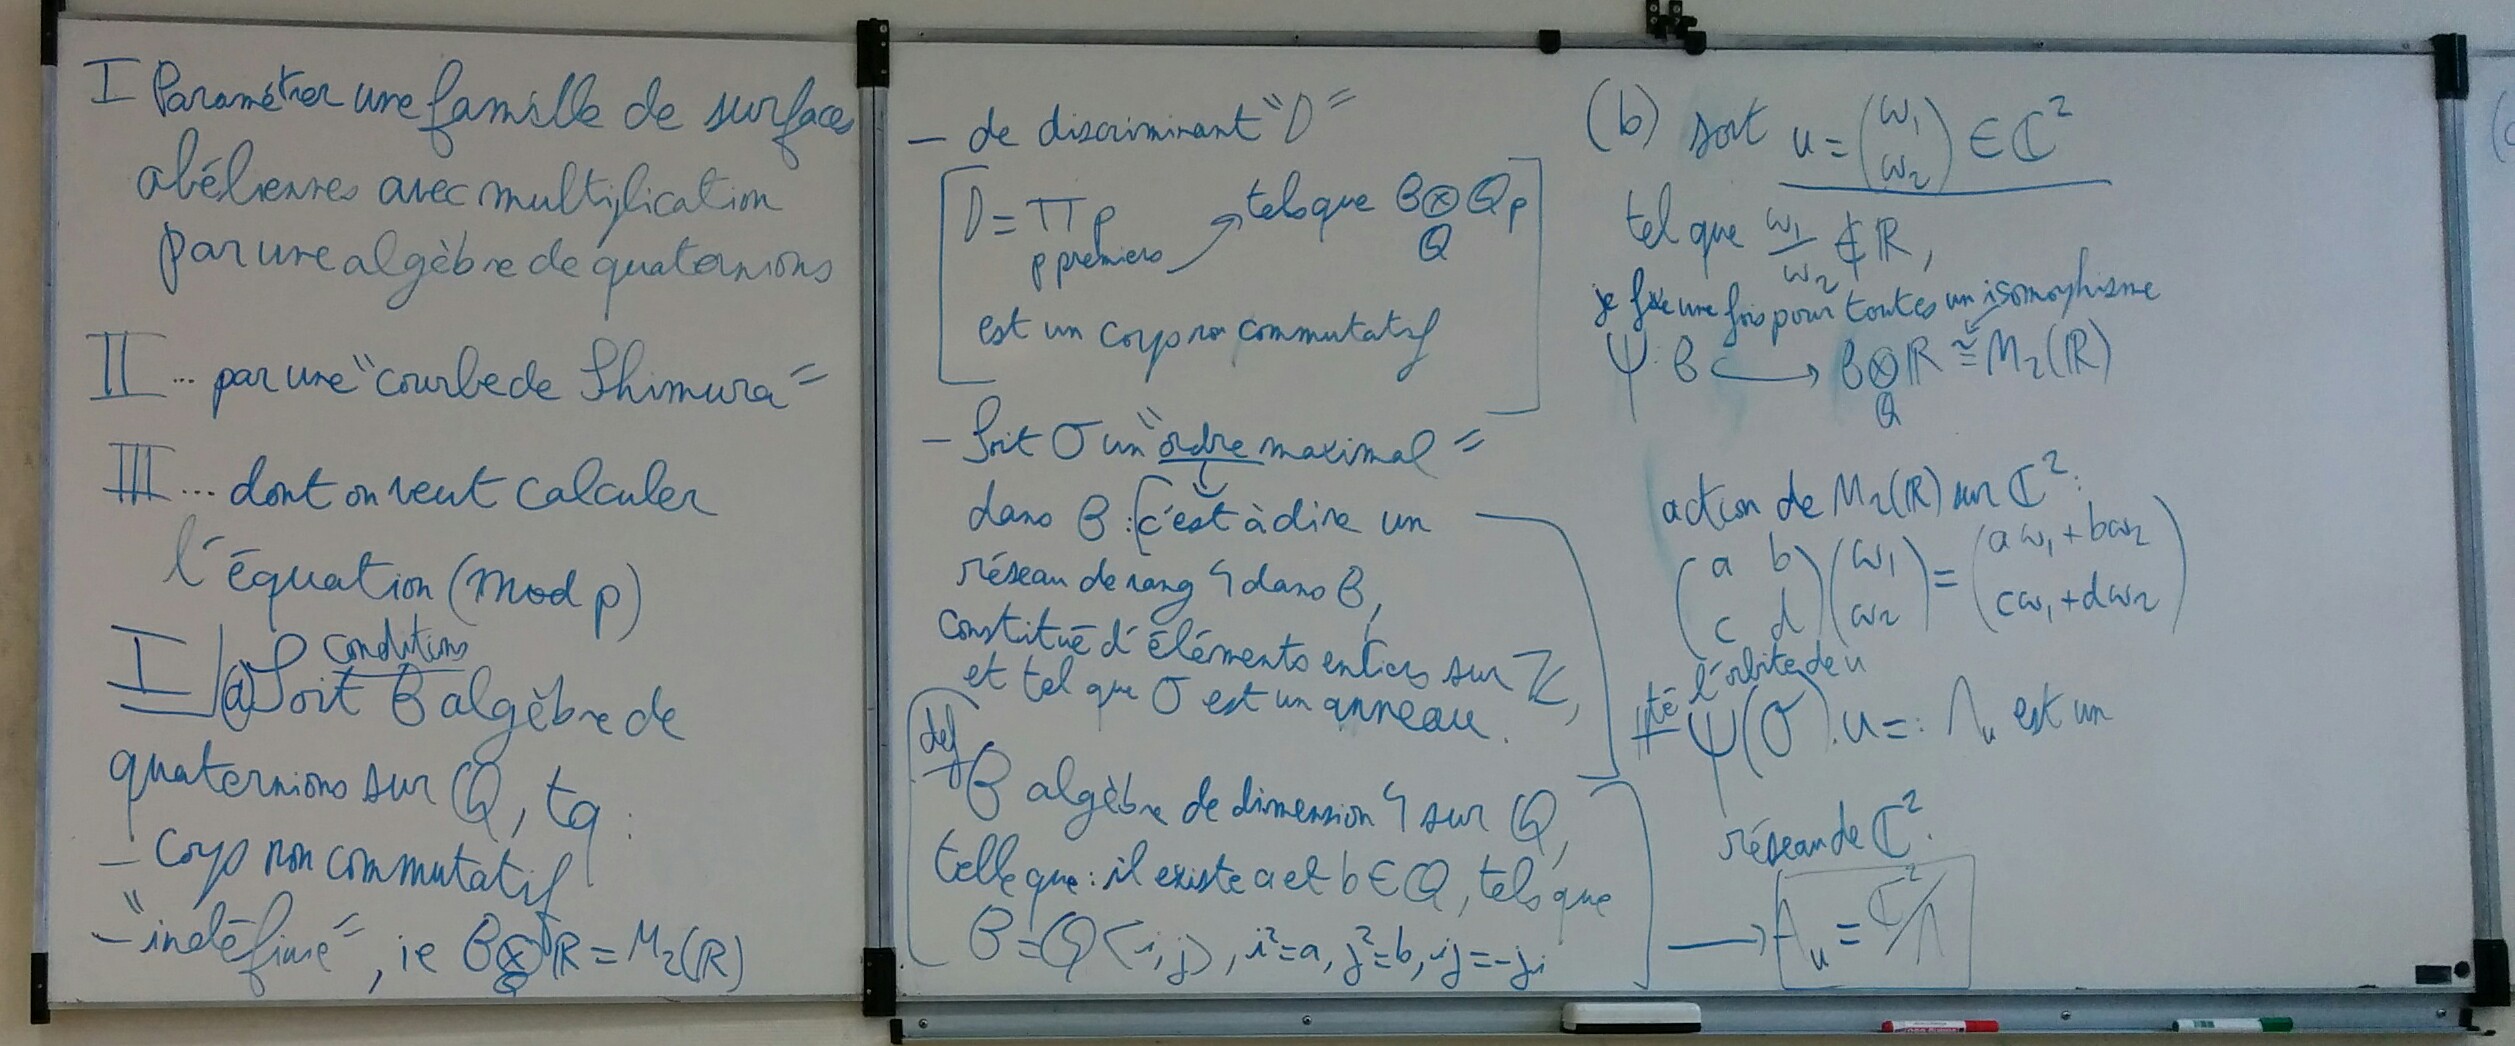 I Paramétrer une famille de surfaces
abéliennes avec multiplication
par une algèbre de quaternions
II ... par une "courbe de Shimura"
III ... dont on veut calculer
l'équation (mod p)
I conditions
(a) Soit B algèbre de
quaternions sur Q, tq :
- Corps non commutatif
- "indéfinie", ie B ⊗_Q R = M₂(R)
- de discriminant "D"
[ D = Π p tels que B ⊗_Q Q_p ]
p premiers
est un corps non commutatif
- Soit O un "ordre maximal"
dans B : [c'est à dire un
réseau de rang 4 dans B,
constitué d'éléments entiers sur Z,
et tel que O est un anneau.
def
B algèbre de dimension 4 sur Q,
telle que : il existe a et b ∈ Q, tels que
B = Q<i,j>, i²=a, j²=b, ij=-ji
(b) soit u = (ω₁ ω₂) ∈ C²
tel que ω₁/ω₂ ∉ R,
je fixe une fois pour toutes un isomorphisme
Ψ : B ↪ B ⊗_Q R ≅ M₂(R)
action de M₂(R) sur C² :
(a b; c d)(ω₁; ω₂) = (aω₁+bω₂; cω₁+dω₂)
l'orbite de u
pté Ψ(O).u =: Λ_u est un
réseau de C².
→ A_u = C²/Λ